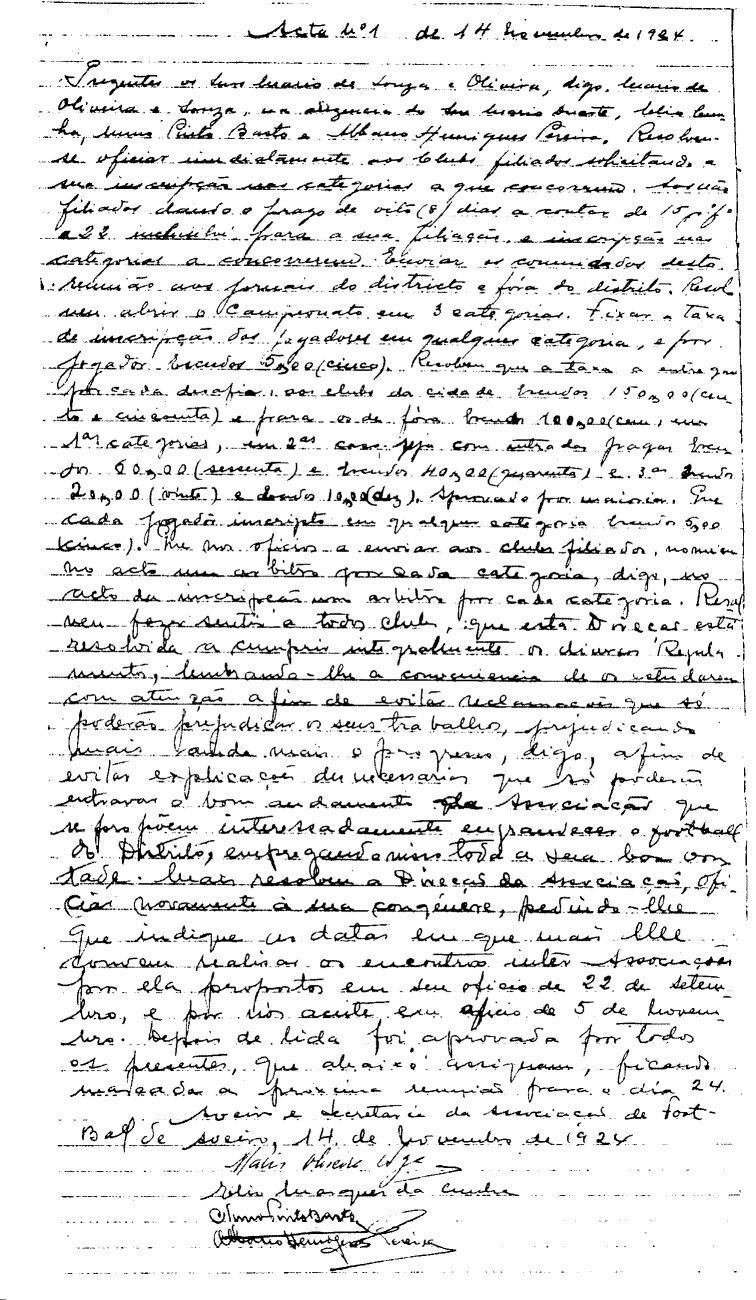 Acta Nº1 de 14 Novembro de 1924.
Presentes os Snrs Mario de Souza e Oliveira, digo, Mario de
Oliveira e Souza, na ausencia do Snr Mario Duarte, Celio Cunha,
ha, Nuno Pinto Basto e Albano Henriques Pereira. Resolveu-
se oficiar imediatamente aos Clubs filiados solicitando a
sua inscripção nas categorias a que concorrem. Aos não
filiados dando o prazo de oito (8) dias a contar de 15 p.f.
a 22 inclusivé para a sua filiação, e inscripção nas
categorias a concorrerem. Enviar os comunicados desta
reunião aos jornais do districto e fóra do distrito. Resol
veu abrir o Campeonato em 3 categorias. Fixar a taxa
de inscripção dos jogadores em qualquer categoria, e por
jogador Escudos 5,00 (cinco). Resolveu que a taxa a entregar
por cada desafio, aos clubs da cidade Escudos 150,00 (cen
to e cincoenta) e para os de fóra Escudos 100,00 (cem, em
1as categorias, em 2as caso seja com entradas pagas Escu
dos 60,00 (sessenta) e Escudos 40,00 (quarenta) e 3as Escudos
20,00 (vinte) e Escudos 10,00 (dez). Aprovado por maioria. Que
cada jogador inscripto em qualquer categoria Escudos 5,00
(cinco). Que nos oficios a enviar aos clubs filiados, nomeiem
no acto um arbitro por cada categoria, digo, no
acto da inscripção um arbitro por cada categoria. Resol
veu fazer sentir a todos clubs, que esta Direcção está
resolvida a cumprir integralmente os diversos Regula
mentos, lembrando-lhe a conveniencia de os estudarem
com atenção a fim de evitar reclamações que só
poderão prejudicar os seus trabalhos, prejudicando
mais ainda mais o progresso, digo, afim de
evitar explicações desnecessarias que só poderão
entravar o bom andamento da Associação que
se propõem interessadamente engrandecer o football
do Distrito, empregando nisso toda a sua boa von
tade. Mais resolveu a Direcção da Associação, ofi-
ciar novamente á sua congénere, pedindo-lhe
que indique as datas em que mais lhe
convem realisar os encontros inter-Associações
por ela propostos em seu oficio de 22 de setem-
bro, e por nós aceite em oficio de 5 de Novem-
bro. Depois de lida foi aprovada por todos
os presentes, que abaixo assignam, ficando
marcada a proxima reunião para o dia 24.
Aveiro e Secretaria da Associação de Foot-
Ball de Aveiro, 14 de Novembro de 1924
Mario Oliveira
Celio Marques da Cunha
Nuno Pinto Basto
Albano Henriques Pereira